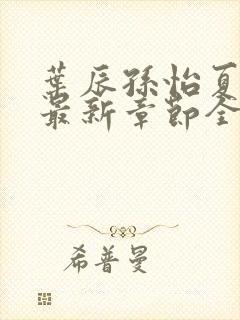 葉辰孫怡夏
最新章節全
希普曼